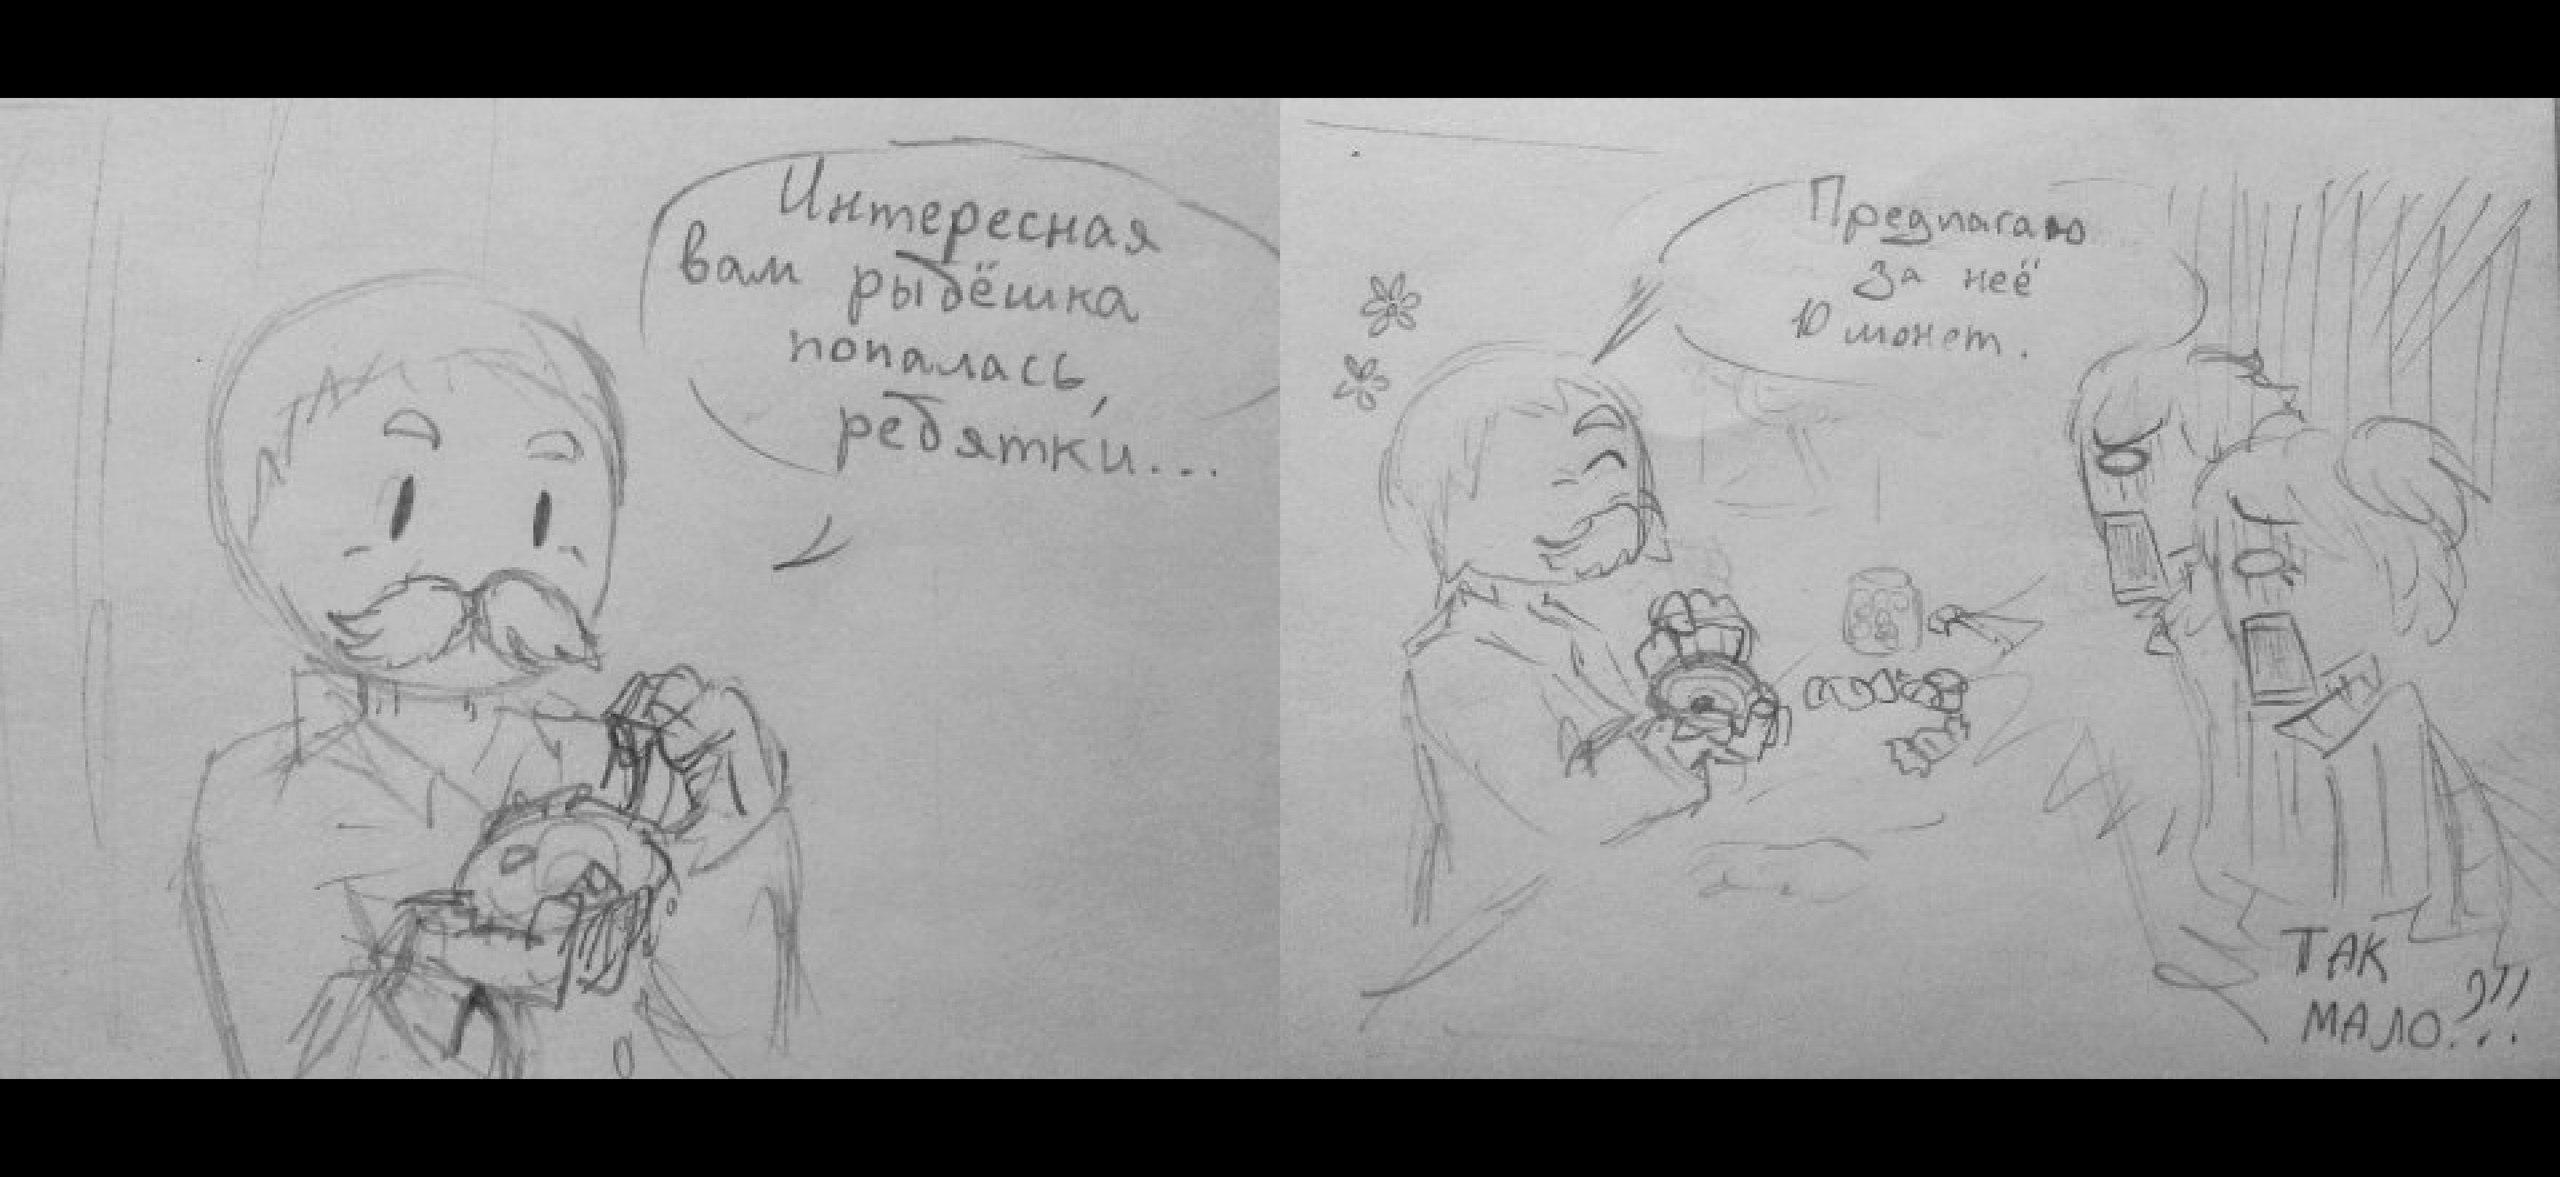 Интересная
вам рыбёшка
попалась,
ребятки...
Предлагаю
за неё
10 монет.
ТАК
МАЛО?!!